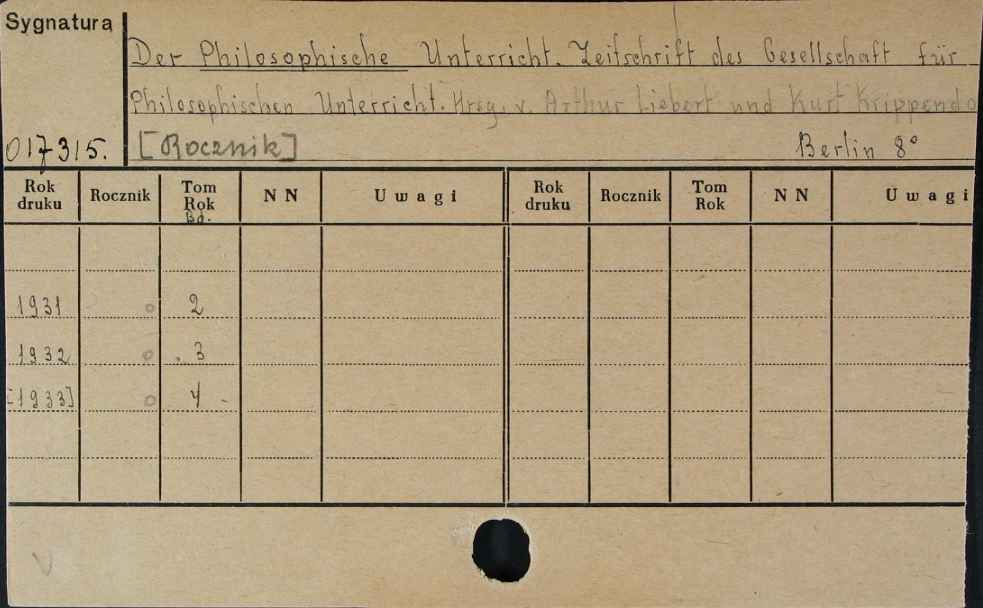 Sygnatura
Der Philosophische Unterricht. Zeitschrift des Gesellschaft für
Philosophischen Unterricht. Hrsg. v. Arthur Liebert und Kurt Krippendo
017315. [Rocznik] Berlin 8°
Rok druku Rocznik Tom Rok Bd. NN Uwagi Rok druku Rocznik Tom Rok NN Uwagi
1931 o 2
1932 o . 3
[1933] o 4 -
V